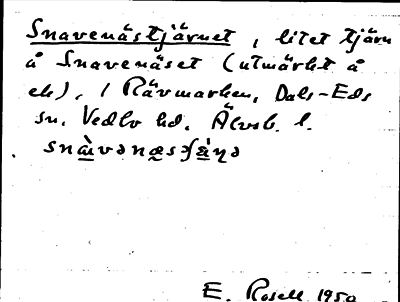 Snavenästjärnet, litet tjärn
å Snavenäset (utmärkt å
ek), i Rävmarken, Dals-Eds
sn. Vedbo hd. Älvsb. l.
E. Rosell 1950